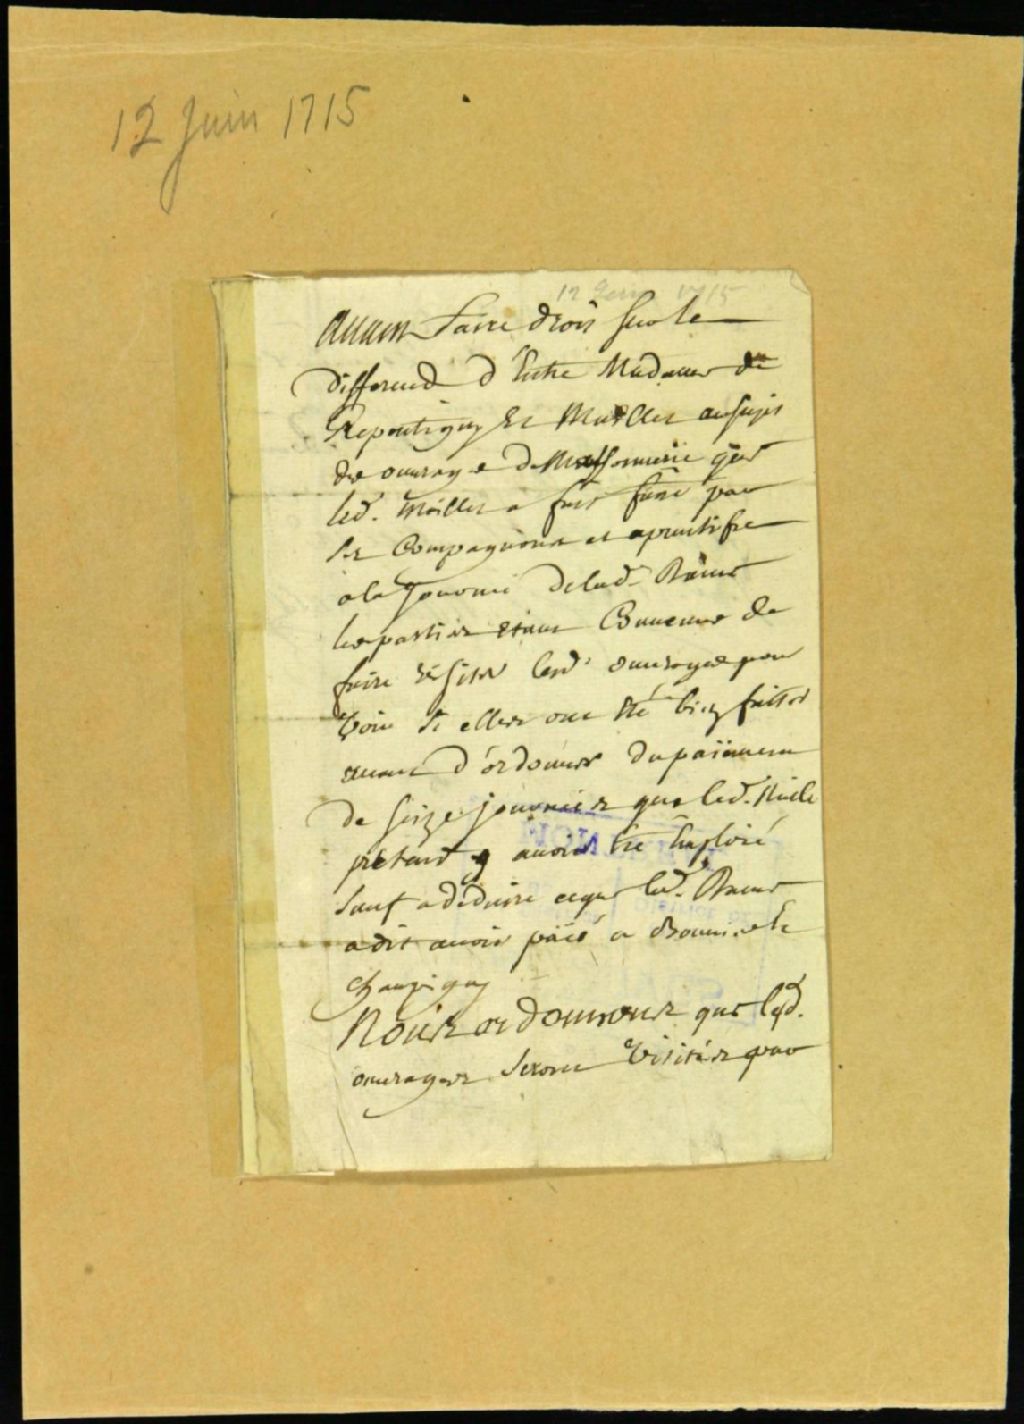 12 Juin 1715
12 Juin 1715
Auant faire droit sur le
differend d'Entre Madame de
Repentigny Et Maillet au sujet
des ouurage de Massonnerie que
led. Maillet a fait faire par
ses Compagnons et aprentifs
a la Journée de lad. Dame
les parties étant Conuenue de
faire visiter lesd. ouurages pour
voir si elles ont été bien faittes
auant d'ordonner du païement
de seize journées que led.
pretend y auoir été Employé
sauf a deduire ce que lad. Dame
a dit auoir païé a et
champigny
Nous ordonnons que lesd.
ouurages seront visités par